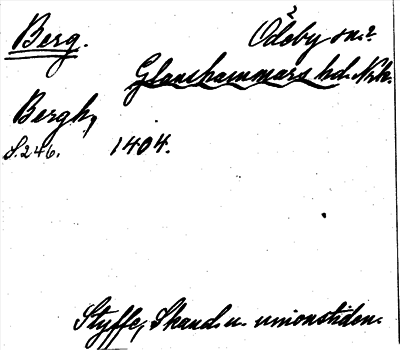 Berg. Ödeby sn.²
Glanshammars hd. Nrk.
Bergh,
S. 246. 1404.
Styffe, Skand. u. unionstiden.